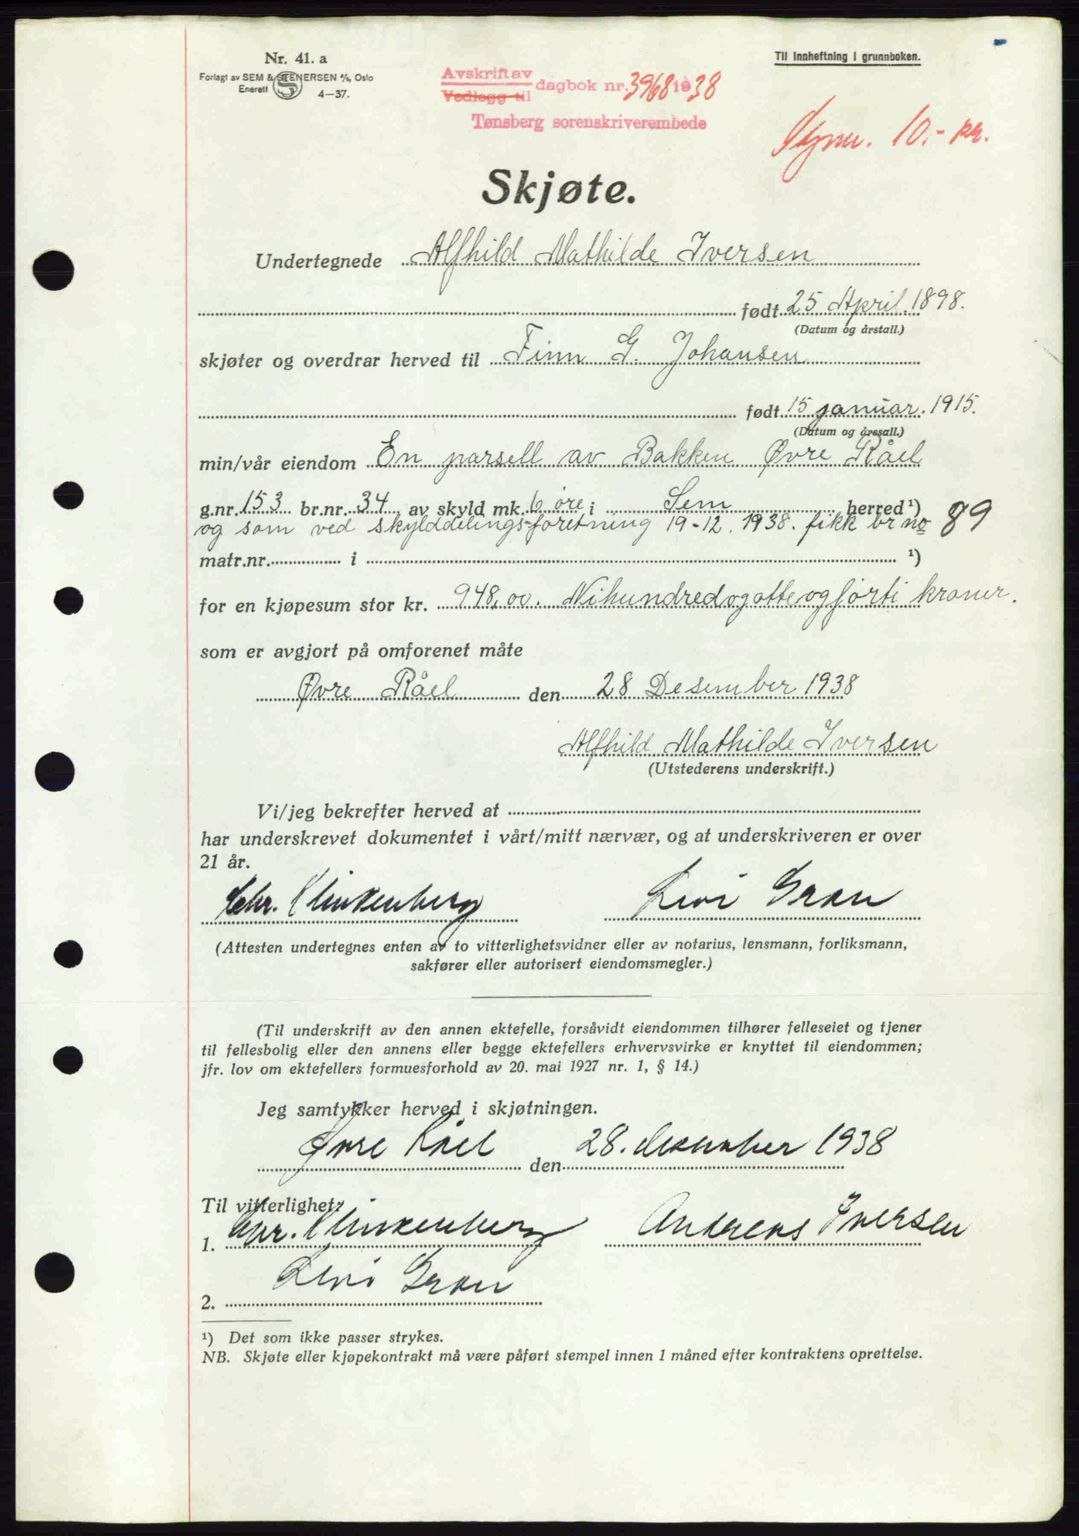 Nr. 41. a
Forlagt av SEM & STENERSEN A/S, Oslo
Enerett 4—37.
Til innheftning i grunnboken.
Avskrift av
Vedlegg til
dagbok nr. 3968 1938
Tønsberg sorenskriverembede
10.- kr.
Skjøte.
Undertegnede Alfhild Mathilde Iversen
født 25 April. 1898.
(Datum og årstall.)
skjøter og overdrar herved til Finn G. Johansen
født 15 januar. 1915.
(Datum og årstall.)
min/vår eiendom En parsell av Bakken Øvre Råel
g.nr. 153 br.nr. 34 av skyld mk. 6 øre i Sem herred ¹)
og som ved skylddelingsforetning 19-12. 1938. fikk br no 89
matr.nr. i ¹)
for en kjøpesum stor kr. 948,00. Nihundredogåtteogførti kroner.
som er avgjort på omforenet måte
Øvre Råel den 28 Desember 1938
Alfhild Mathilde Iversen
(Utstederens underskrift.)
Vi/jeg bekrefter herved at
har underskrevet dokumentet i vårt/mitt nærvær, og at underskriveren er over
21 år.
Chr. Klinkenberg Levi Gran
(Attesten undertegnes enten av to vitterlighetsvidner eller av notarius, lensmann, forliksmann,
sakfører eller autorisert eiendomsmegler.)
(Til underskrift av den annen ektefelle, forsåvidt eiendommen tilhører felleseiet og tjener
til fellesbolig eller den annens eller begge ektefellers erhvervsvirke er knyttet til eiendommen;
jfr. lov om ektefellers formuesforhold av 20. mai 1927 nr. 1, § 14.)
Jeg samtykker herved i skjøtningen.
Øvre Råel den 28. desember 1938
Til vitterlighet:
1. Chr. Klinkenberg Andreas Iversen
Levi Gran
2.
¹) Det som ikke passer strykes.
NB. Skjøte eller kjøpekontrakt må være påført stempel innen 1 måned efter kontraktens oprettelse.